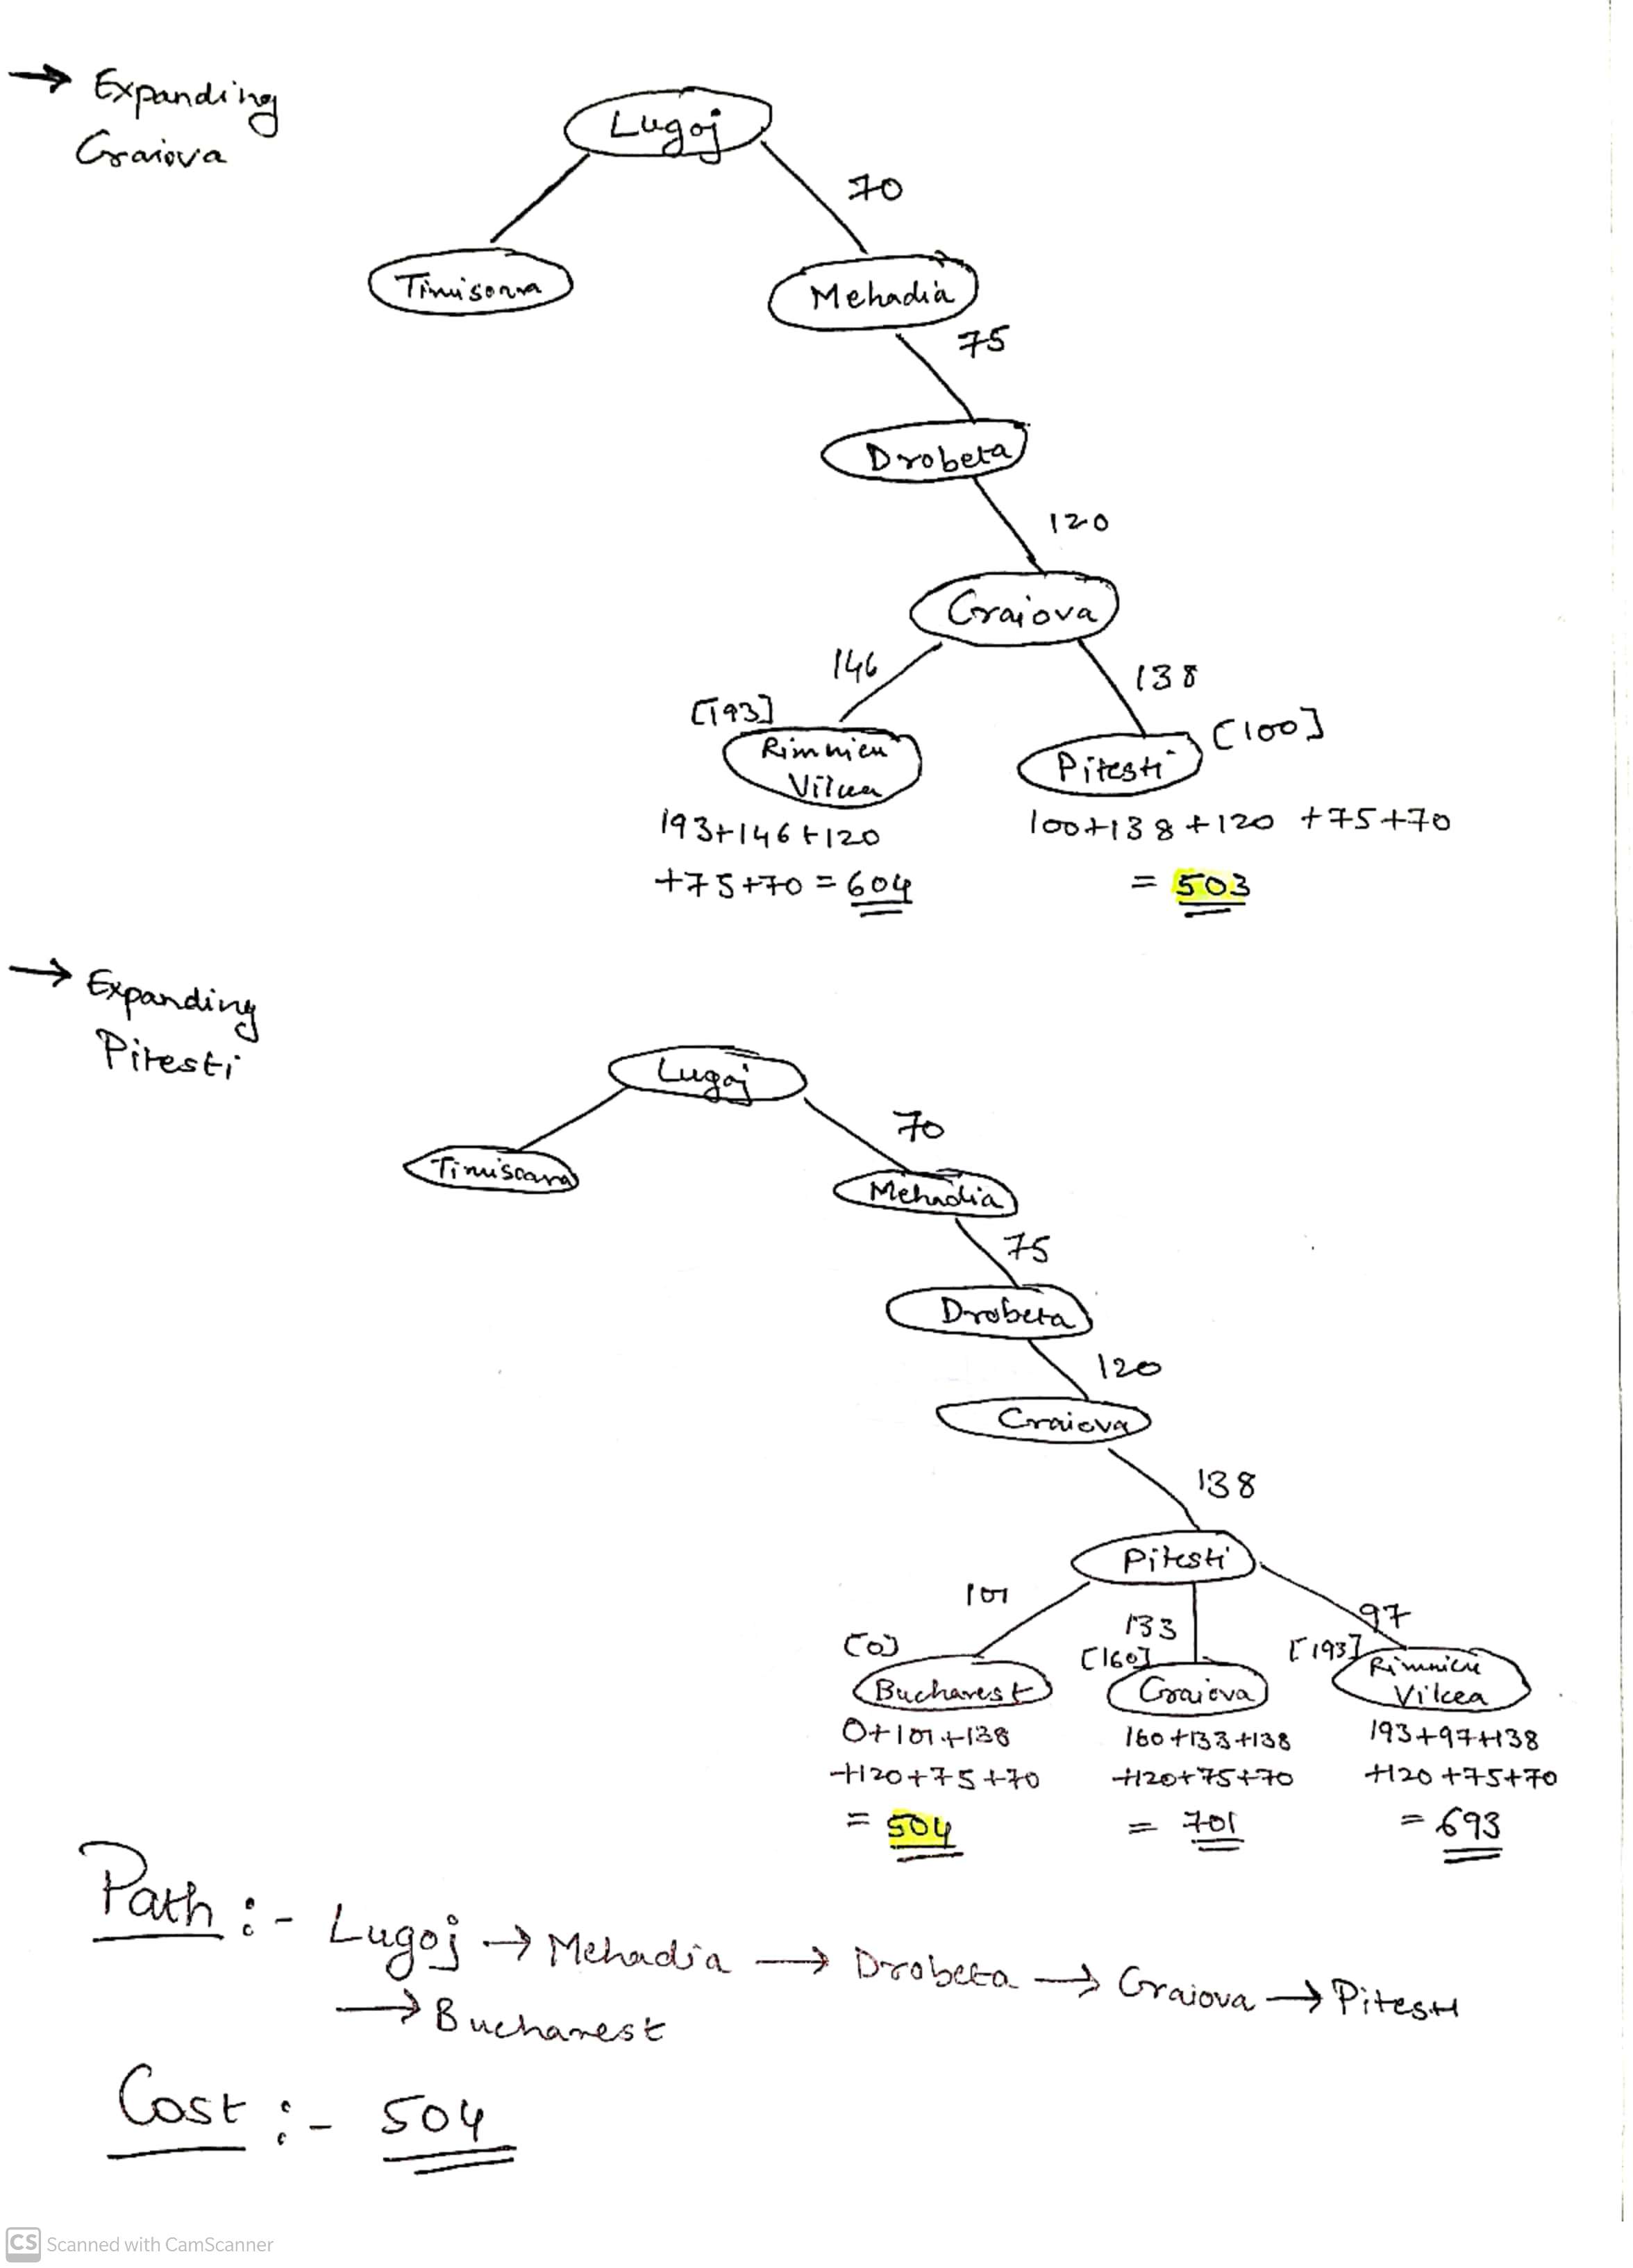 → Expanding
Craiova
Lugoj
70
Timisoara
Mehadia
75
Drobeta
120
Craiova
146
138
[193]
[100]
Rimnicu
Vilcea
Pitesti
193+146+120
+75+70 = 604
100+138+120 +75+70
= 503
→ Expanding
Pitesti
Lugoj
70
Timisoara
Mehadia
75
Drobeta
120
Craiova
138
Pitesti
101
133
97
[0]
[160]
[193]
Bucharest
Craiova
Rimnicu
Vilcea
0+101+138
+120+75+70
= 504
160+133+138
+120+75+70
= 701
193+97+138
+120+75+70
= 693
Path :- Lugoj → Mehadia → Drobeta → Craiova → Pitesti
→ Bucharest
Cost :- 504
CS Scanned with CamScanner